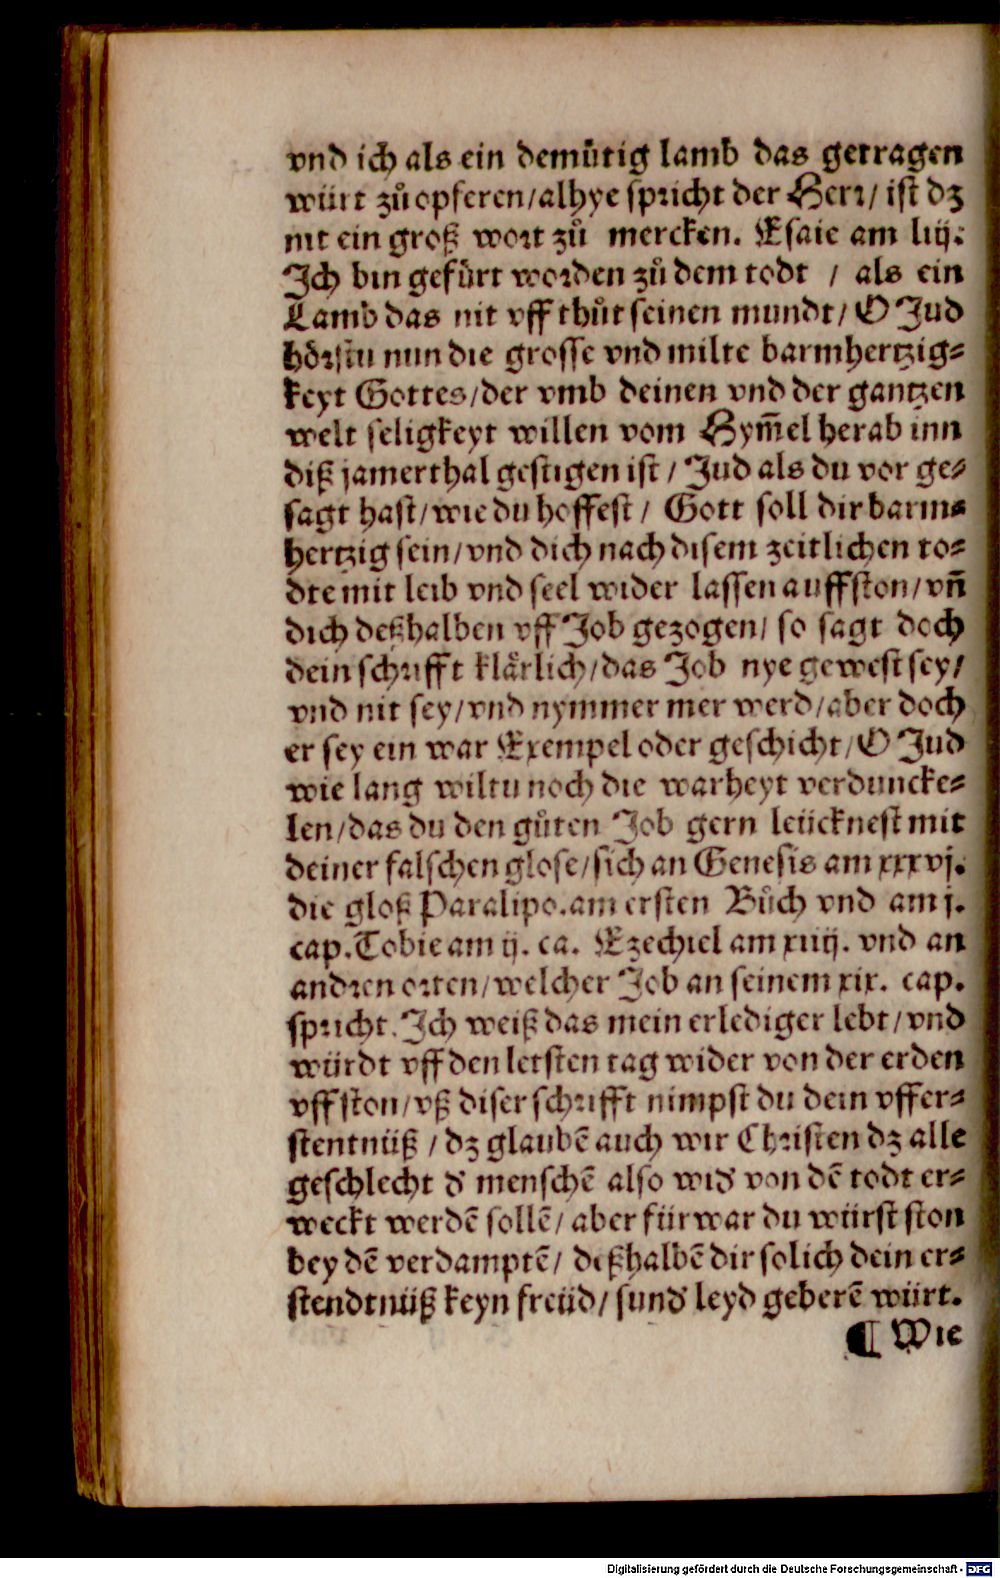 vnd ich als ein demuͤtig lamb das getragen
würt zuͦ opferen/alhye spricht der Herr/ ist dz
nit ein groß wort zuͦ mercken. Esaie am liij.
Ich bin gefuͤrt worden zuͦ dem todt / als ein
Lamb das nit vff thuͦt seinen mundt/ O Jud
hoͤrstu nun die grosse vnd milte barmhertzig⸗
keyt Gottes/der vmb deinen vnd der gantzen
welt seligkeyt willen vom Hym̃el herab inn
diß jamerthal gestigen ist/ Jud als du vor ge⸗
sagt hast/wie du hoffest/ Gott soll dir barm⸗
hertzig sein/vnd dich nach disem zeitlichen to⸗
dte mit leib vnd seel wider lassen auffston/vñ
dich deßhalben vff Job gezogen/ so sagt doch
dein schrifft klaͤrlich/das Job nye gewest sey/
vnd nit sey/vnd nymmer mer werd/aber doch
er sey ein war Exempel oder geschicht/O Jud
wie lang wiltu noch die warheyt verduncke⸗
len/das du den guͦten Job gern leücknest mit
deiner falschen glose/sich an Genesis am xxxvj.
die gloß Paralipo.am ersten Buͦch vnd am j.
cap.Tobie am ij. ca. Ezechiel am xiiij. vnd an
andren orten/welcher Job an seinem xix. cap.
spricht.Ich weiß das mein erlediger lebt/vnd
würdt vff den letsten tag wider von der erden
vffston/vß diser schrifft nimpst du dein vffer⸗
stentnüß/dz glaubẽ auch wir Christen dz alle
geschlecht d' menschẽ also wid' von dẽ todt er⸗
weckt werdẽ sollẽ/aber fürwar du würst ston
bey dẽ verdamptẽ/ deßhalbẽ dir solich dein er⸗
stendtnüß keyn freüd/sund' leyd geberẽ würt.
¶ Wie
Digitalisierung gefördert durch die Deutsche Forschungsgemeinschaft - DFG